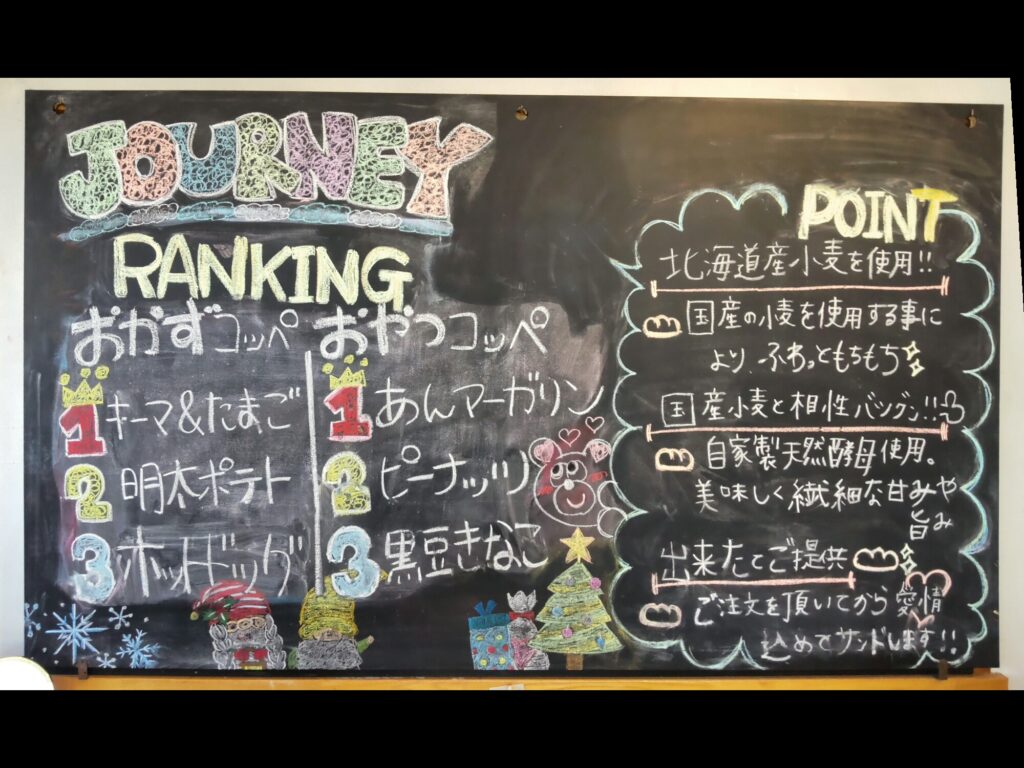 JOURNEY
RANKING
おかずコッペ
1 キーマ&たまご
2 明太ポテト
3 ホットドッグ
おやつコッペ
1 あんマーガリン
2 ピーナッツ
3 黒豆きなこ
POINT
北海道産小麦を使用!!
国産の小麦を使用する事に
より、ふわっともちもち
国産小麦と相性バツグン!!
自家製天然酵母使用。
美味しく繊細な甘みや
旨み
出来たてご提供
ご注文を頂いてから愛情
込めてサンドします!!